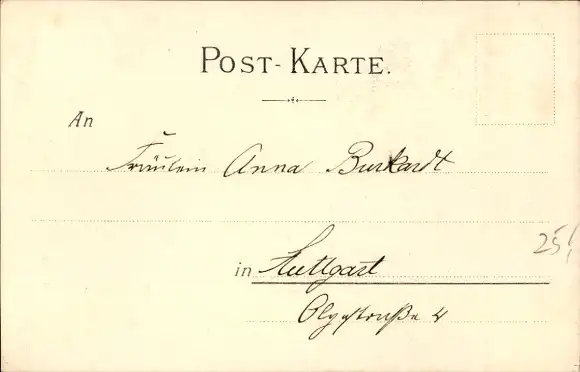 POST-KARTE.
An
Fräulein Anna Burkardt
in Stuttgart
Olgastraße 4
25!